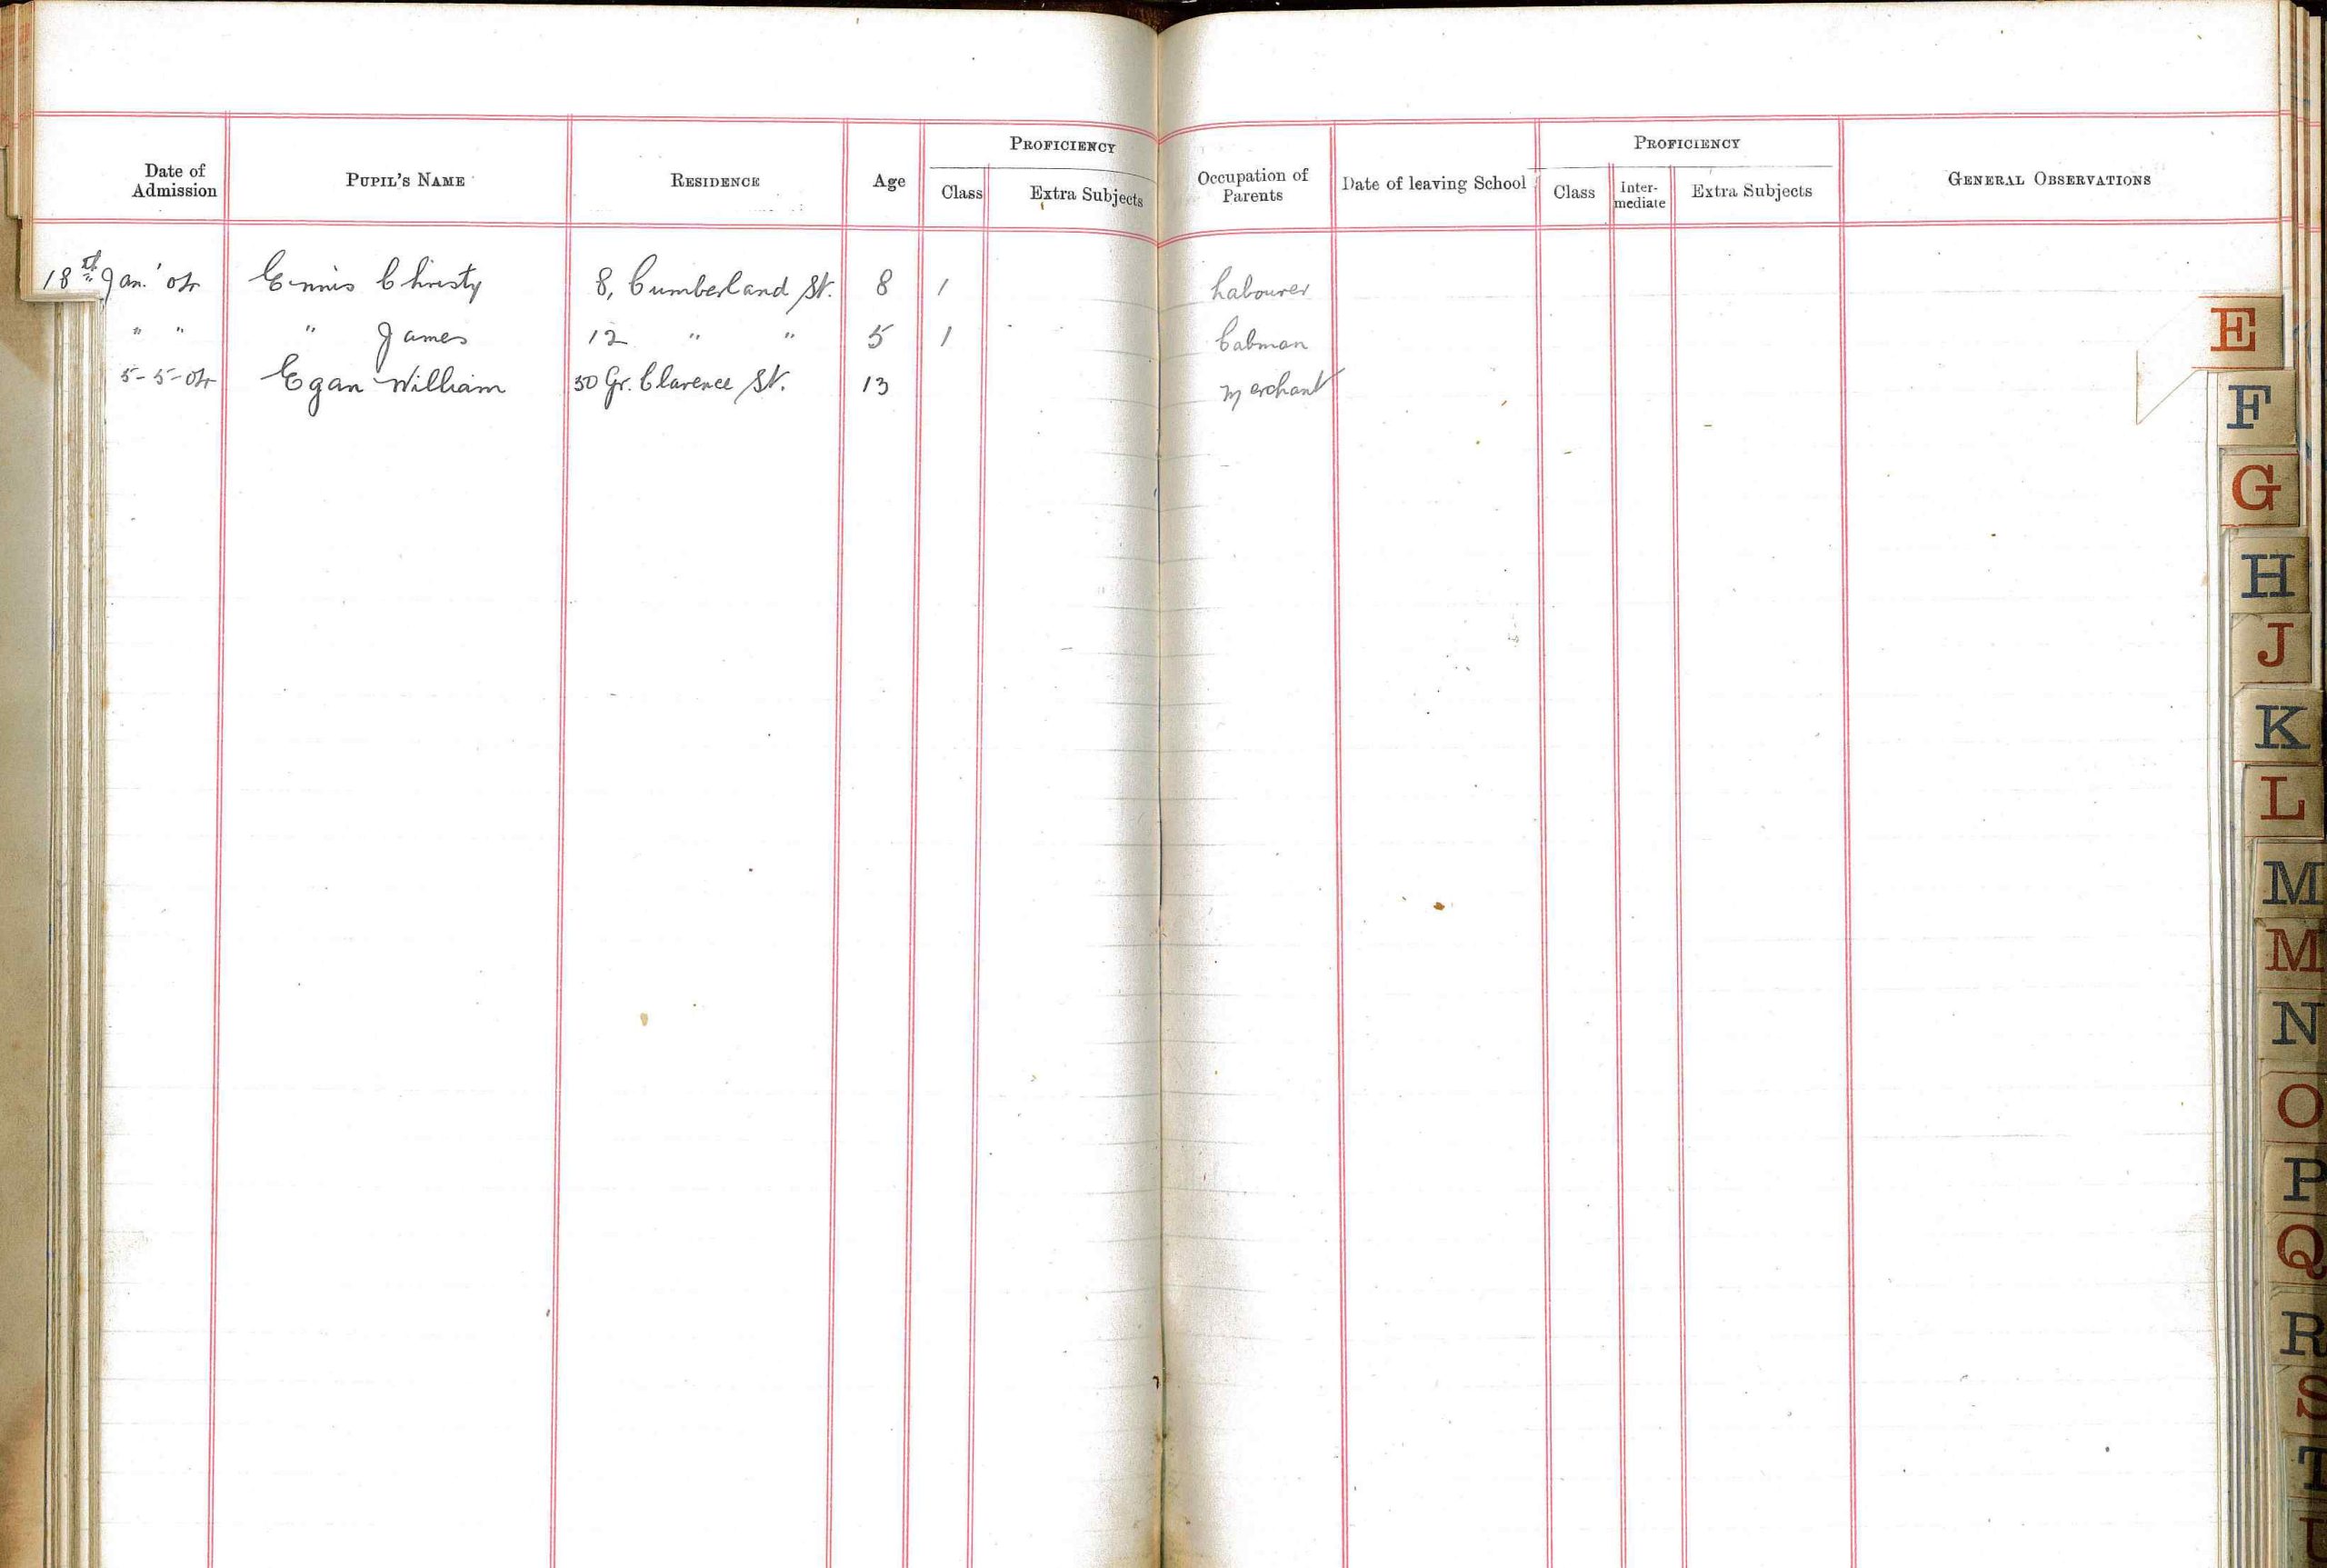 PROFICIENCY PROFICIENCY
Date of Admission PUPIL'S NAME RESIDENCE Age Class Extra Subjects Occupation of Parents Date of leaving School Class Inter-mediate Extra Subjects GENERAL OBSERVATIONS
18th Jan. '04 Ennis Christy 8, Cumberland St. 8 1 Labourer
" " " James 12 " " 5 1 Cabman
5-5-04 Egan William 50 Gr. Clarence St. 13 Merchant
E
F
G
H
J
K
L
M
M
N
O
P
Q
R
S
T
U